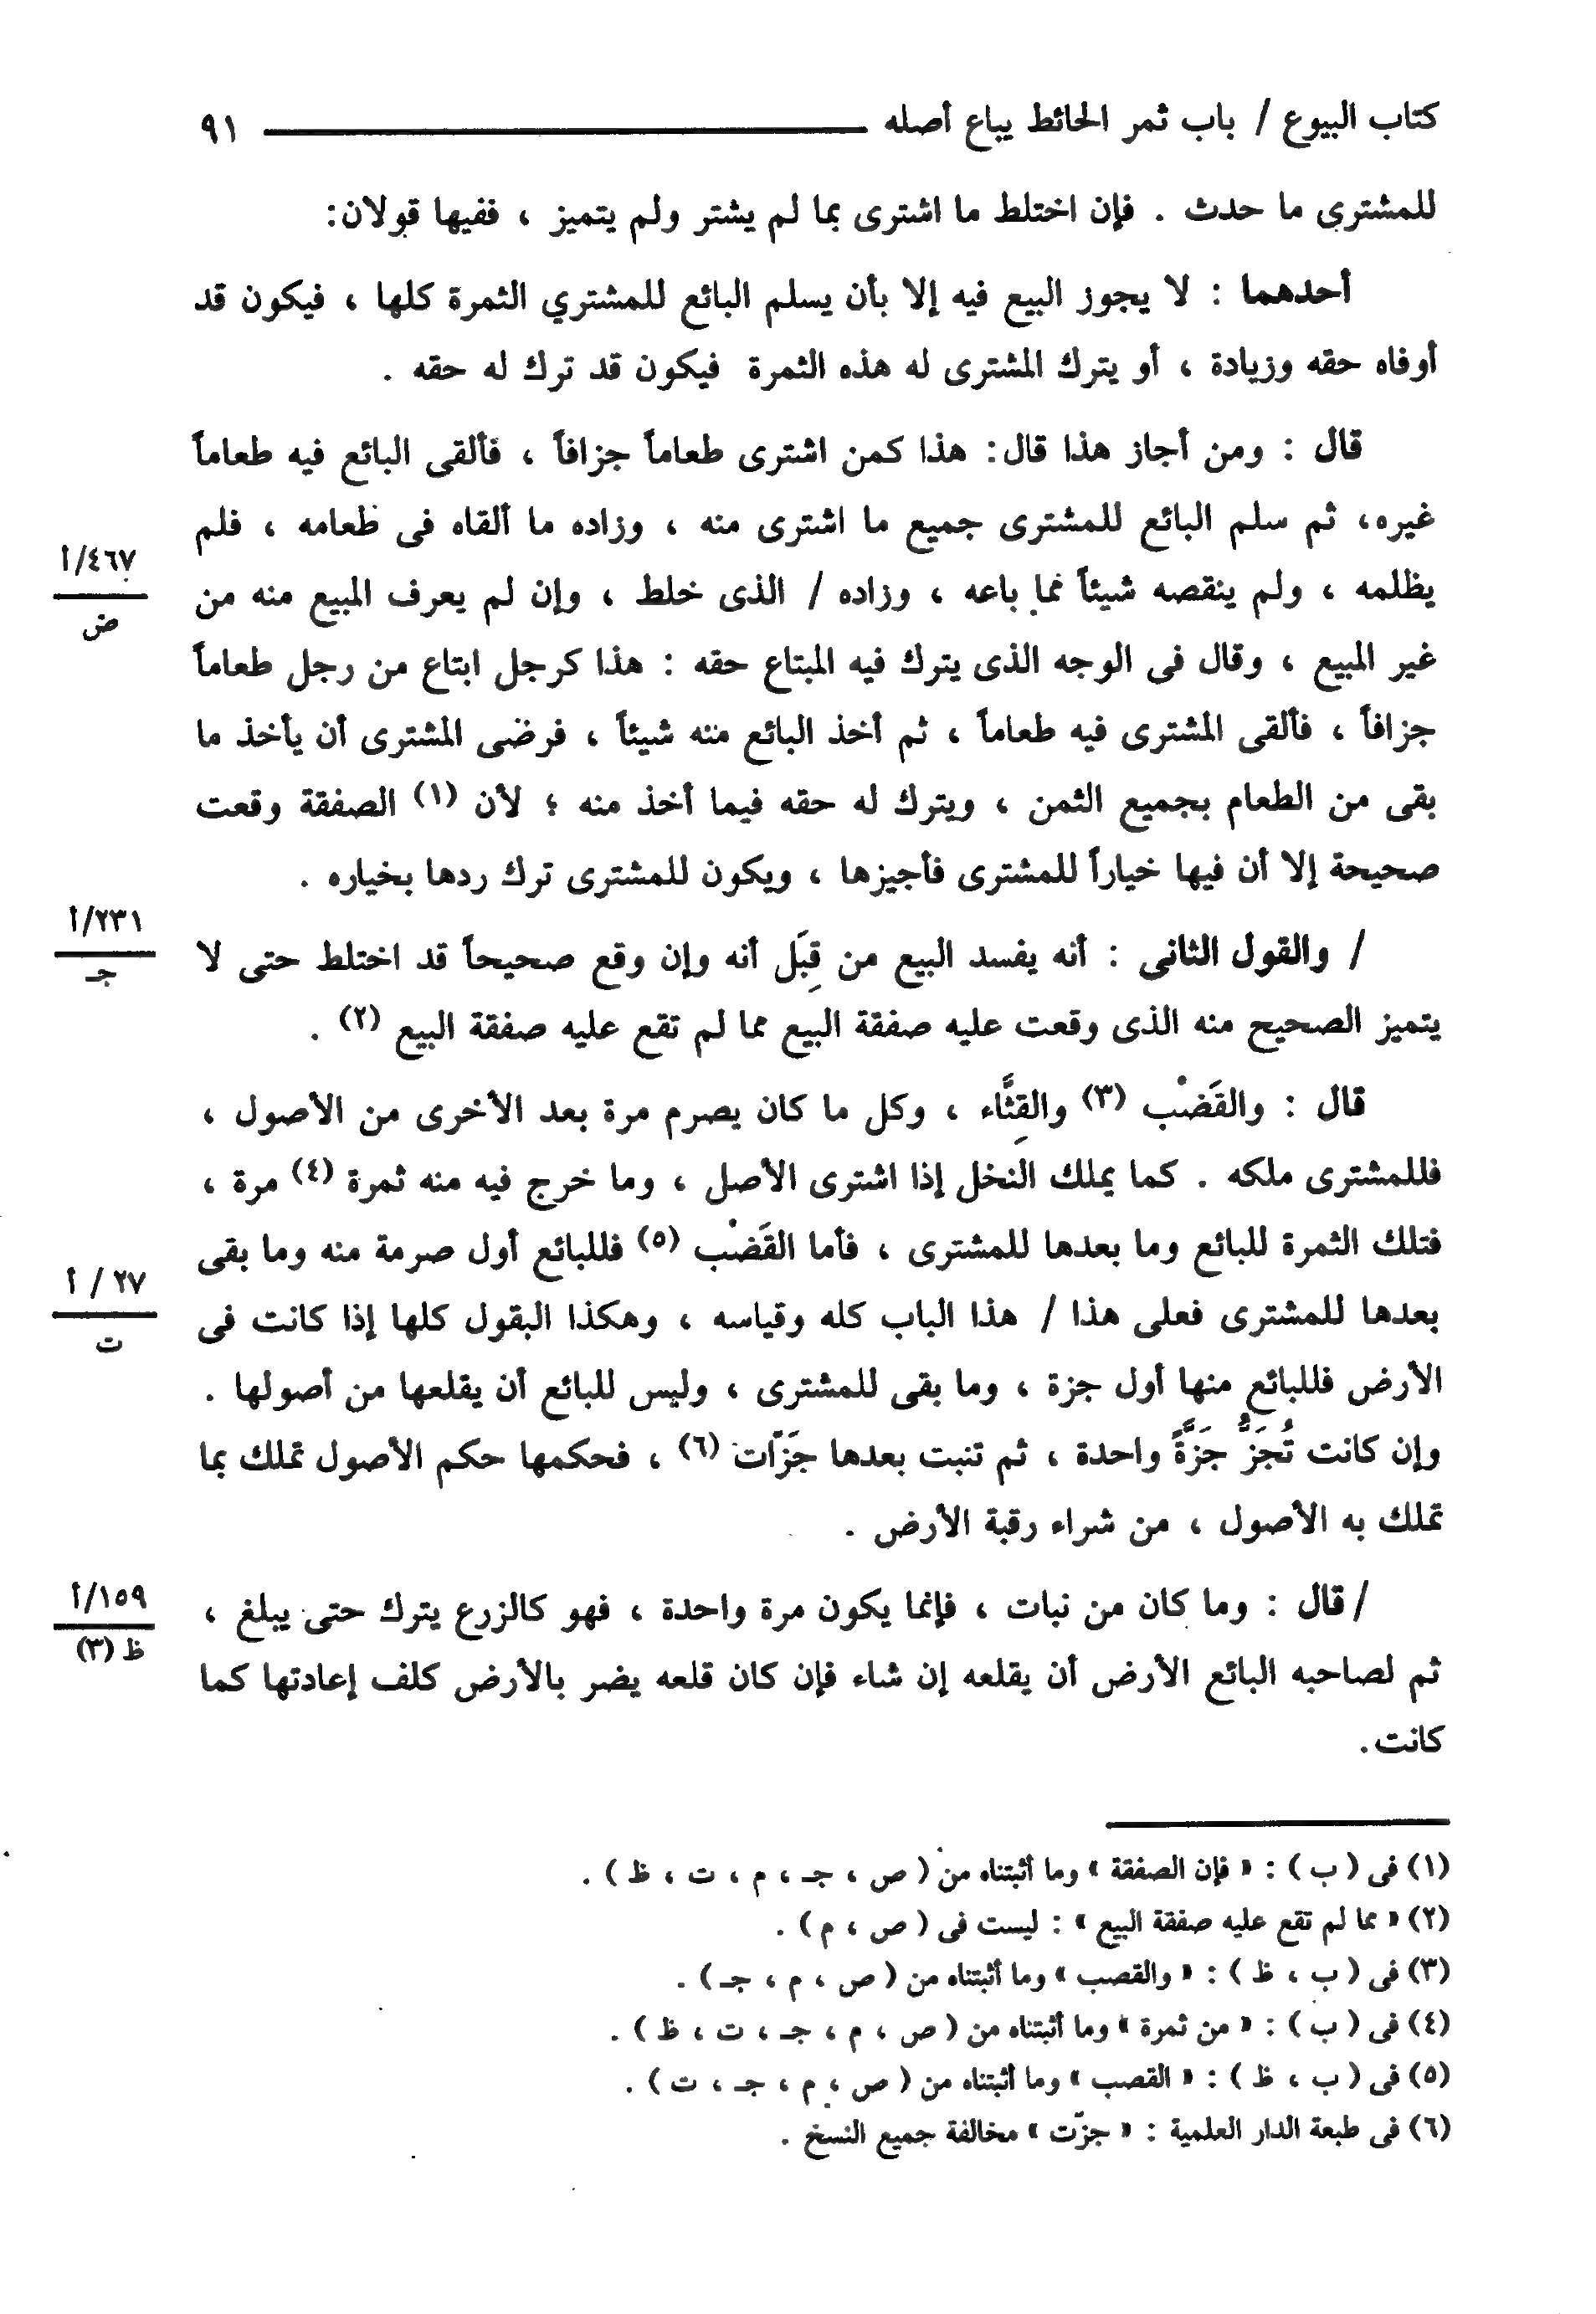 كتاب البيوع / باب ثمر الحائط يباع أصله ٩١
للمشترى ما حدث . فإن اختلط ما اشترى بما لم يشتر ولم يتميز ، ففيها قولان:
أحدهما : لا يجوز البيع فيه إلا بأن يسلم البائع للمشتري الثمرة كلها ، فيكون قد
أوفاه حقه وزيادة ، أو يترك المشترى له هذه الثمرة فيكون قد ترك له حقه .
قال : ومن أجاز هذا قال: هذا كمن اشترى طعاماً جزافاً ، فألقى البائع فيه طعاماً
غيره، ثم سلم البائع للمشترى جميع ما اشترى منه ، وزاده ما ألقاه فى طعامه ، فلم
٤٦٧/أ
يظلمه ، ولم ينقصه شيئاً مما باعه ، وزاده / الذى خلط ، وإن لم يعرف المبيع منه من
ض
غير المبيع ، وقال فى الوجه الذى يترك فيه المبتاع حقه : هذا كرجل ابتاع من رجل طعاماً
جزافاً ، فألقى المشترى فيه طعاماً ، ثم أخذ البائع منه شيئاً ، فرضى المشترى أن يأخذ ما
بقى من الطعام بجميع الثمن ، ويترك له حقه فيما أخذ منه ؛ لأن (١) الصفقة وقعت
صحيحة إلا أن فيها خياراً للمشترى فأجيزها ، ويكون للمشترى ترك ردها بخياره .
٢٣١/أ
/ والقول الثانى : أنه يفسد البيع من قِبَل أنه وإن وقع صحيحاً قد اختلط حتى لا
جـ
يتميز الصحيح منه الذى وقعت عليه صفقة البيع مما لم تقع عليه صفقة البيع (٢) .
قال : والقَضْب (٣) والقِثَّاء ، وكل ما كان يصرم مرة بعد الأخرى من الأصول ،
فللمشترى ملكه . كما يملك النخل إذا اشترى الأصل ، وما خرج فيه منه ثمرة (٤) مرة ،
فتلك الثمرة للبائع وما بعدها للمشترى ، فأما القَضْب (٥) فللبائع أول صرمة منه وما بقى
٢٧ / أ
بعدها للمشترى فعلى هذا / هذا الباب كله وقياسه ، وهكذا البقول كلها إذا كانت فى
ت
الأرض فللبائع منها أول جزة ، وما بقى للمشترى ، وليس للبائع أن يقلعها من أصولها .
وإن كانت تُجَزُّ جَزَّةً واحدة ، ثم تنبت بعدها جَزَّات (٦) ، فحكمها حكم الأصول تملك بما
تملك به الأصول ، من شراء رقبة الأرض .
١٥٩/أ
/ قال : وما كان من نبات ، فإنما يكون مرة واحدة ، فهو كالزرع يترك حتى يبلغ ،
ظ (٣)
ثم لصاحبه البائع الأرض أن يقلعه إن شاء فإن كان قلعه يضر بالأرض كلف إعادتها كما
كانت.
(١) فى ( ب ) : « فإن الصفقة » وما أثبتناه من ( ص ، جـ ، م ، ت ، ظ ) .
(٢) « مما لم تقع عليه صفقة البيع » : ليست فى ( ص ، م ) .
(٣) فى ( ب ، ظ ) : « والقصب » وما أثبتناه من ( ص ، م ، جـ ) .
(٤) فى ( ب ) : « من ثمرة » وما أثبتناه من ( ص ، م ، جـ ، ت ، ظ ) .
(٥) فى ( ب ، ظ ) : « القصب » وما أثبتناه من ( ص ، م ، جـ ، ت ) .
(٦) فى طبعة الدار العلمية : « جزّت » مخالفة جميع النسخ .